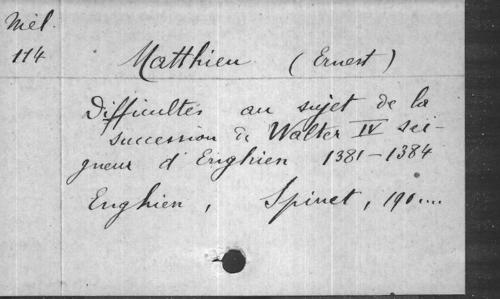 Mél.
114
Matthieu (Ernest)
Difficultés au sujet de la
succession de Walter IV sei-
gneur d'Enghien 1381-1384
Enghien, Spinet, 190....